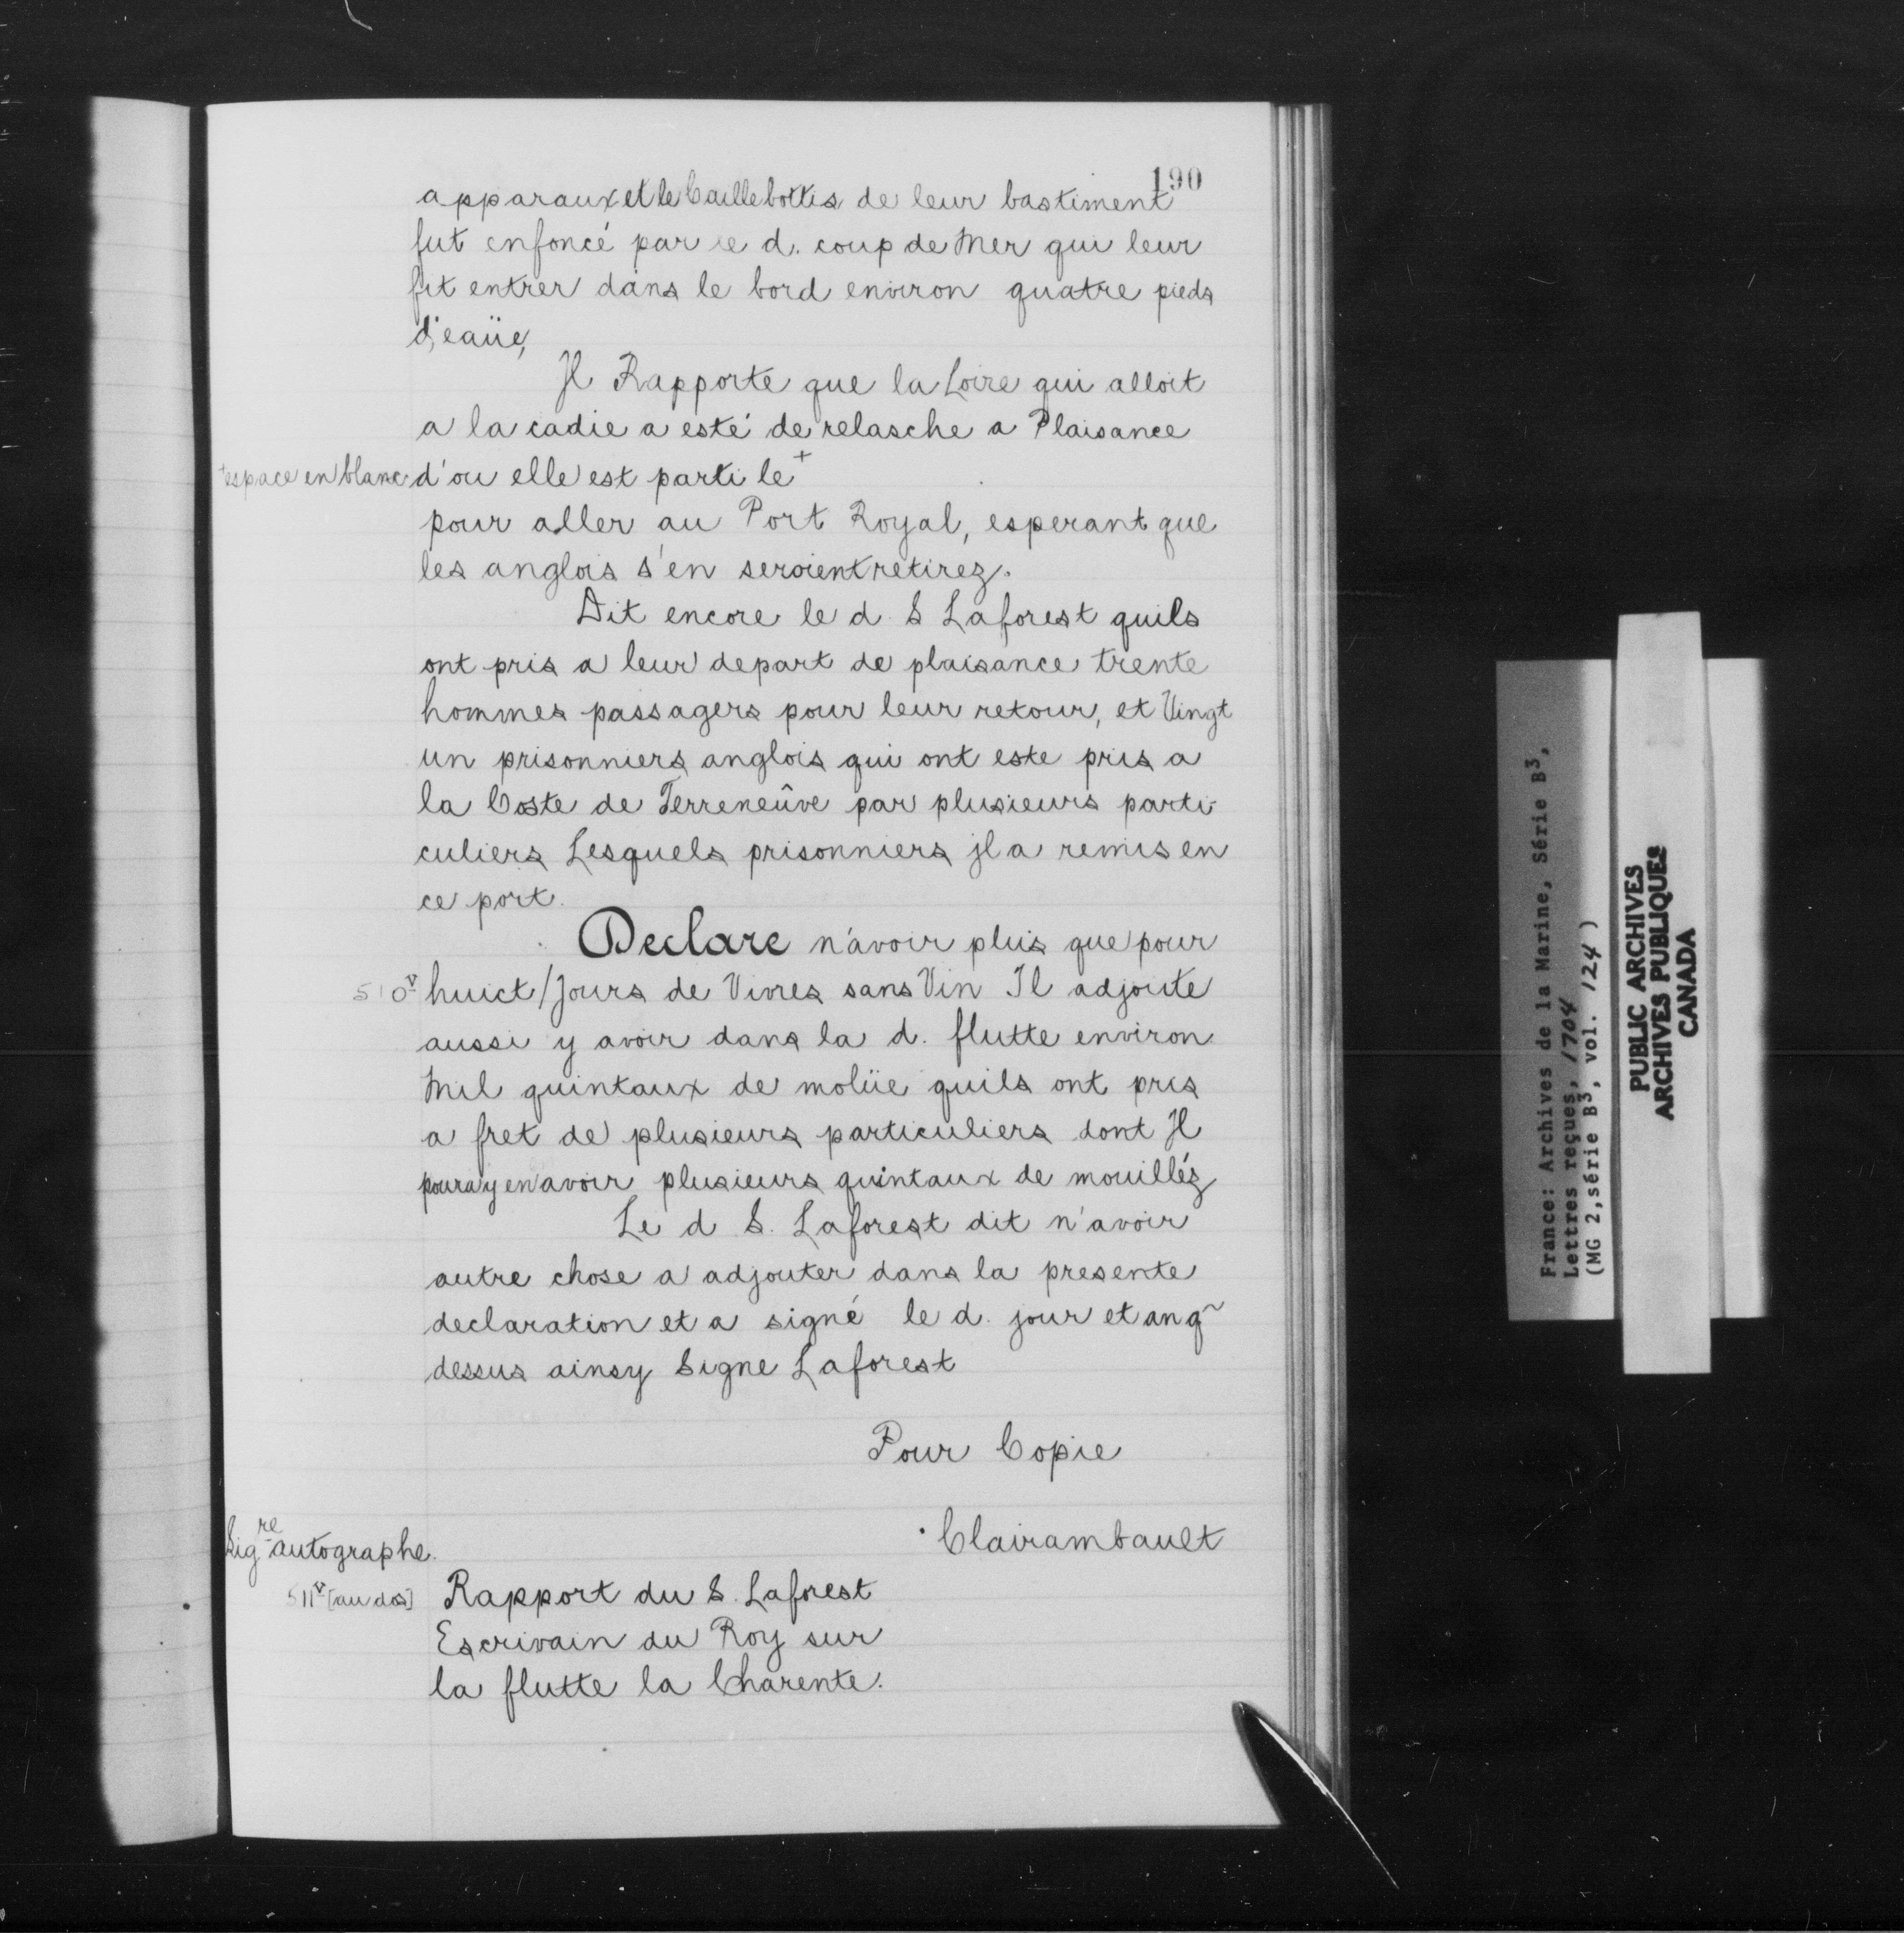 190
apparaux et le Caillebottis de leur bastiment
fut enfoncé par le d. coup de Mer qui leur
fit entrer dans le bord environ quatre pieds
d'eaüe,
Jl Rapporte que la Loire qui alloit
a la cadie a esté de relasche a Plaisance
+espace en blanc d'ou elle est parti le +
pour aller au Port Royal, esperant que
les anglois s'en seroient retirez.
Dit encore le d S Laforest quils
ont pris a leur depart de plaisance trente
hommes passagers pour leur retour, et Vingt
un prisonniers anglois qui ont este pris a
la Coste de Terreneûve par plusieurs parti
culiers Lesquels prisonniers jl a remis en
ce port.
Declare n'avoir plus que pour
510v huict/Jours de Vivres sans Vin Il adjoute
aussi y avoir dans la d. flutte environ
Mil quintaux de molüe quils ont pris
a fret de plusieurs particuliers dont Jl
poura y en avoir plusieurs quintaux de mouilléz
Le d S. Laforest dit n'avoir
autre chose a adjouter dans la presente
declaration et a signé le d. jour et an q~
dessus ainsy Signe Laforest
Pour Copie
Clairambault
Sigre autographe.
511v [au dos] Rapport du S. Laforest
Escrivain du Roy sur
la flutte la Charente.
France: Archives de la Marine, Série B3,
Lettres reçues, 1704
(MG 2, série B3, vol. 124)
PUBLIC ARCHIVES
ARCHIVES PUBLIQUES
CANADA